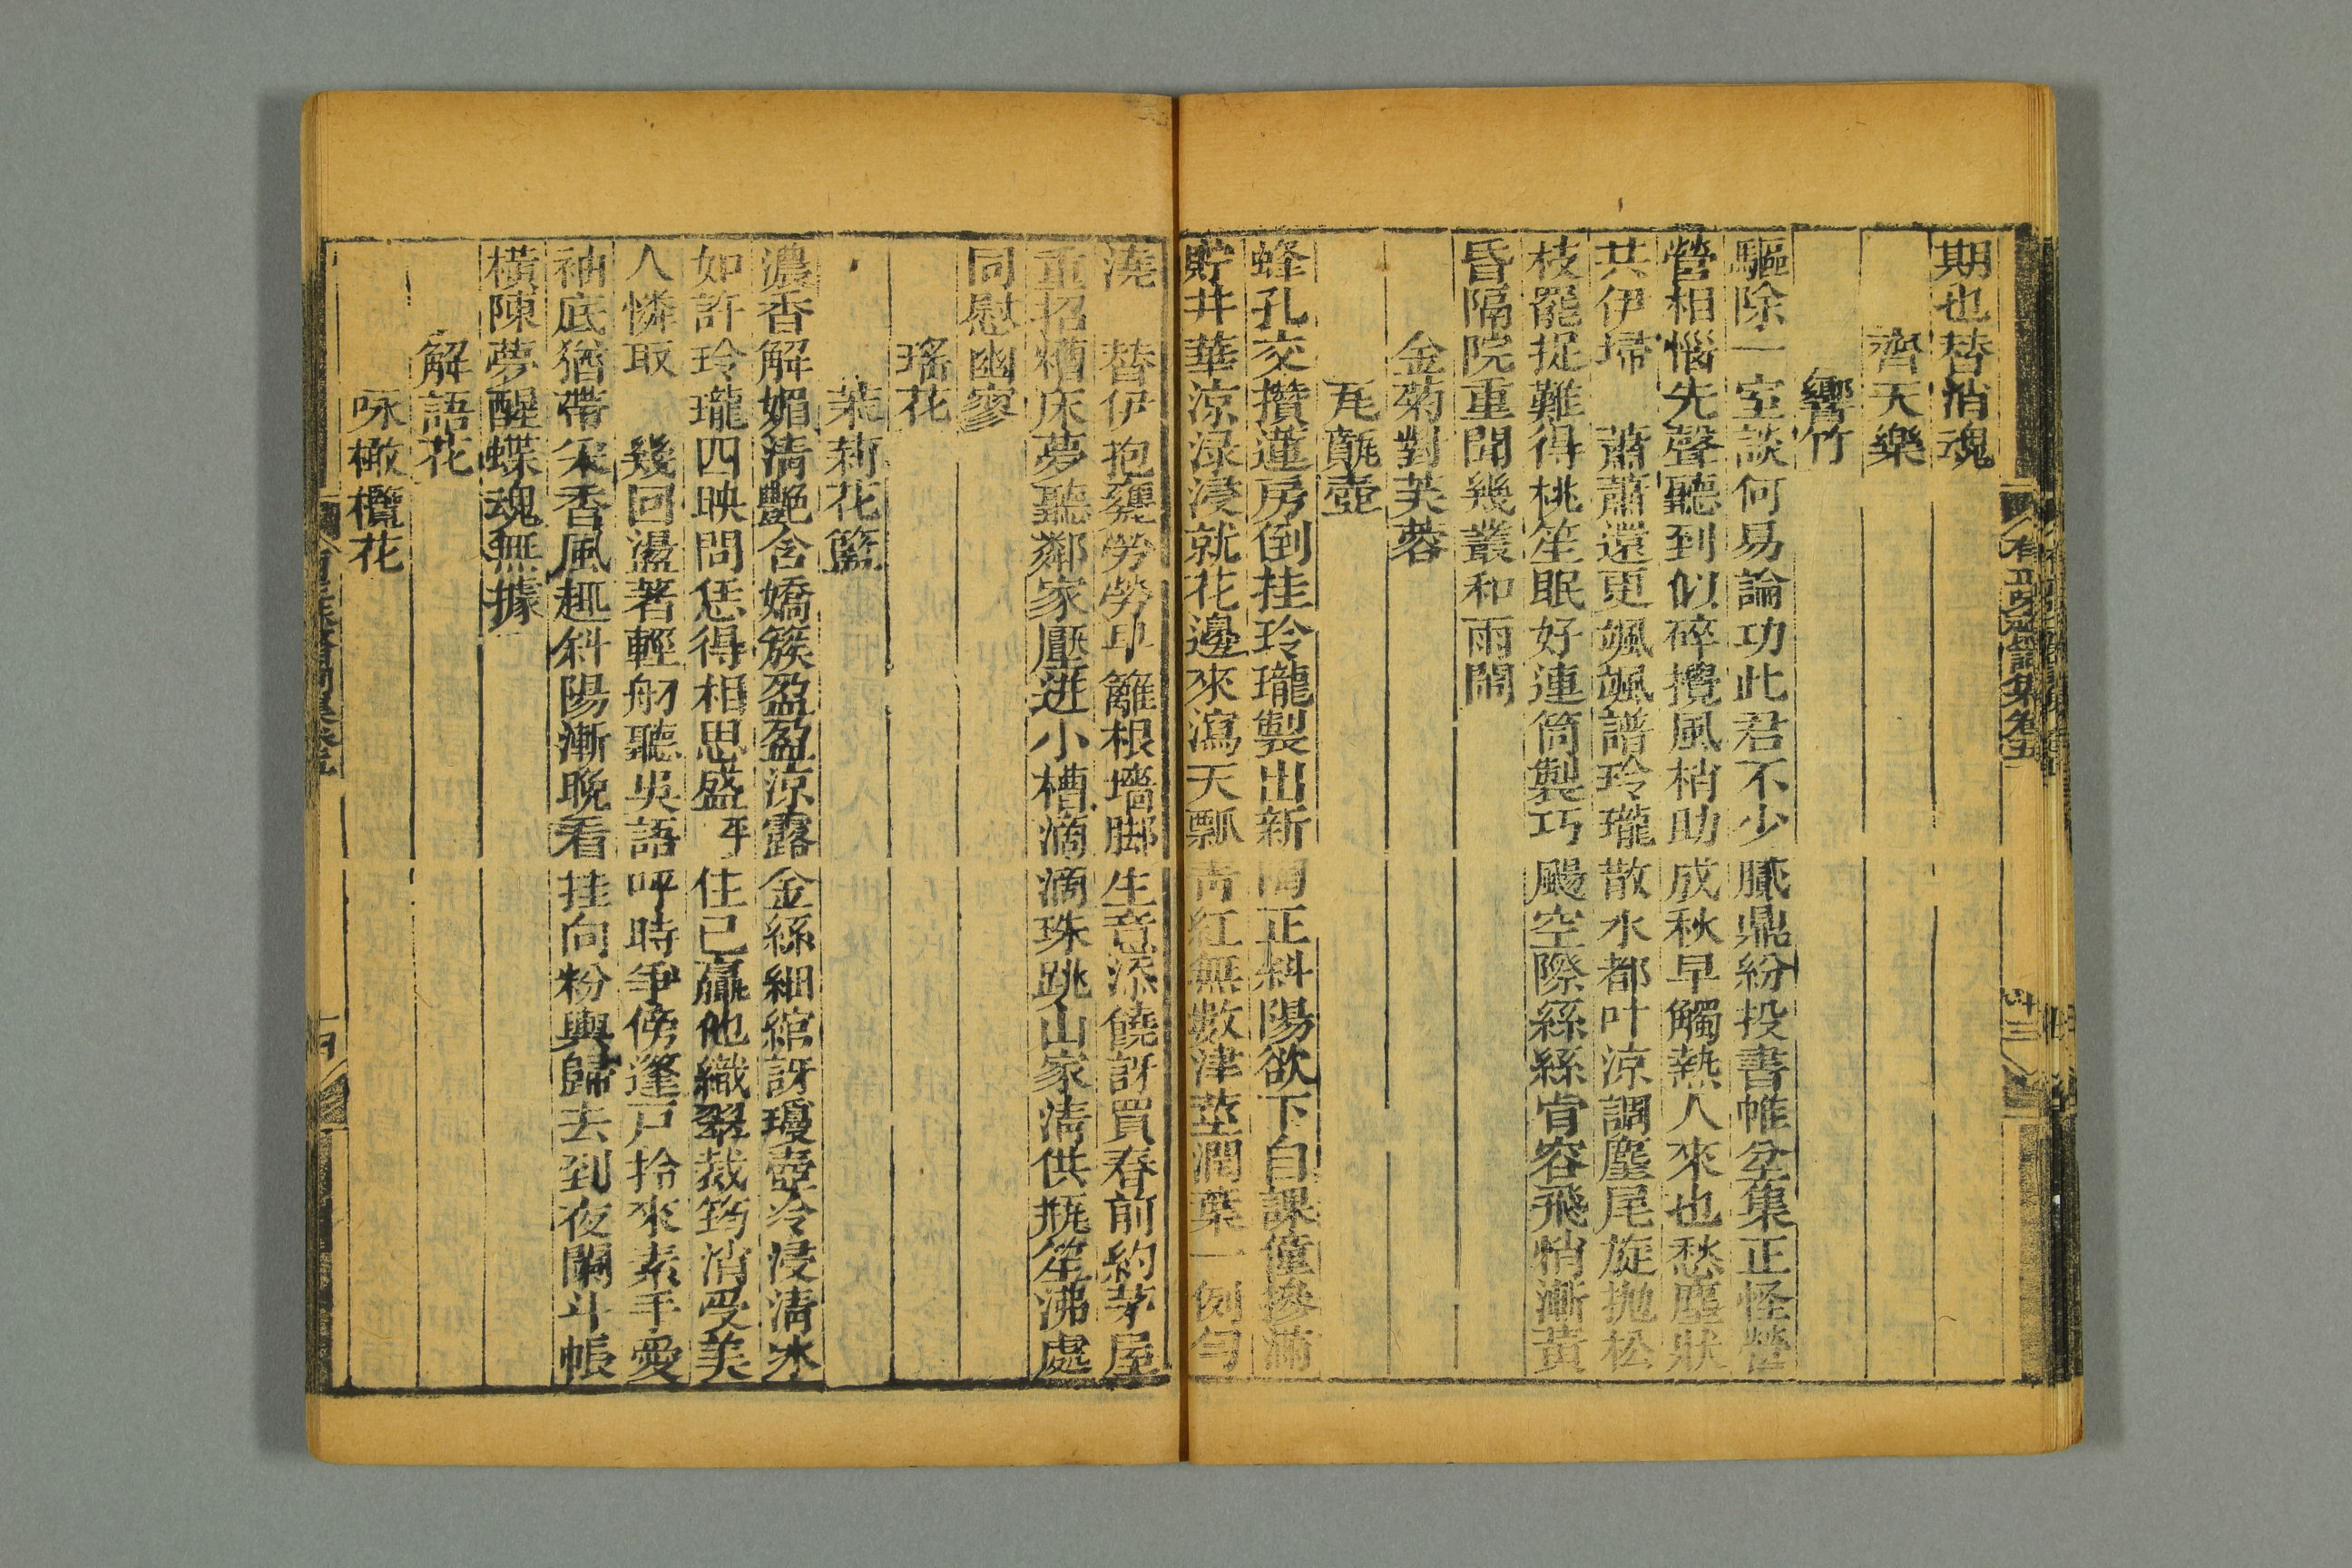 期也替消魂
齊天樂
響竹
驅除一室談何易論功此君不少膩鼎紛投書帷坌集正怪營
營相惱先聲聽到似碎攪風梢助成秋早觸熱人來也愁塵狀
共伊埽　蕭蕭還更颯颯譜玲瓏散水都叶涼調麈尾旋拋松
枝罷捉難得桃笙眠好連筒製巧颺空際絲絲肯容飛悄漸黃
昏隔院重聞幾叢和雨鬧
金菊對芙蓉
瓦甋壺
蜂孔交攢蓮房倒挂玲瓏製出新　正斜陽欲下自課僮摻滿
貯井華涼淥浸就花邊來瀉天瓢青紅無數津莖潤葉一例勻
澆　替伊抱甕勞勞早籬根墻脚生意添饒訝買春前約茅屋
重招糟床夢聽鄰家壓迸小槽滴滴珠跳山家淸供瓶笙沸處
同慰幽寥
瑤花
茉莉花籃
濃香解媚淸艷含嬌簇盈盈涼露金絲細綰訝瓊壺冷浸淸氷
如許玲瓏四映問恁得相思盛住已贏他織翠裁筠消受美
人憐取　幾回盪著輕舠聽吳語呼時爭傍蓬戶拎來素手愛
袖底猶帶柔香風趣斜陽漸晚看挂向粉輿歸去到夜闌斗帳
橫陳夢醒蝶魂無據
解語花
咏橄欖花
有正味齋詞集卷五
十三